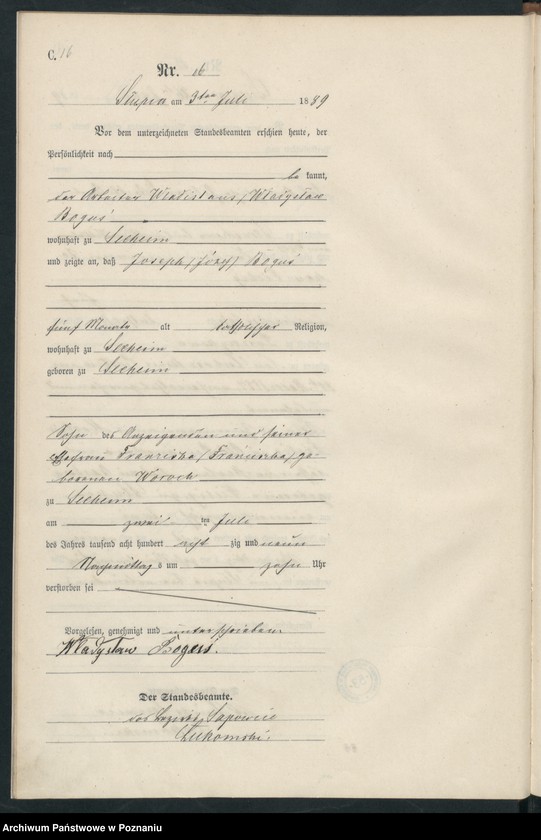 C. 16
Nr. 16
Slupia am 3ten Juli 1889
Vor dem unterzeichneten Standesbeamten erschien heute, der
Persönlichkeit nach
be kannt,
der Arbeiter Wladislaus /Władysław
Boguś
wohnhaft zu Seeheim
und zeigte an, daß Joseph /Józef/ Boguś
fünf Monate alt katholischer Religion,
wohnhaft zu Seeheim
geboren zu Seeheim
Sohn des Anzeigenden und seiner
Ehefrau Franziska /Franciszka/ ge-
borenen Woroch
zu Seeheim
am zwei ten Juli
des Jahres tausend acht hundert acht zig und neun
Vormittags um zehn Uhr
verstorben sei
Vorgelesen, genehmigt und unterschrieben
Władysław Boguś.
Der Standesbeamte.
Archiwum Państwowe w Poznaniu